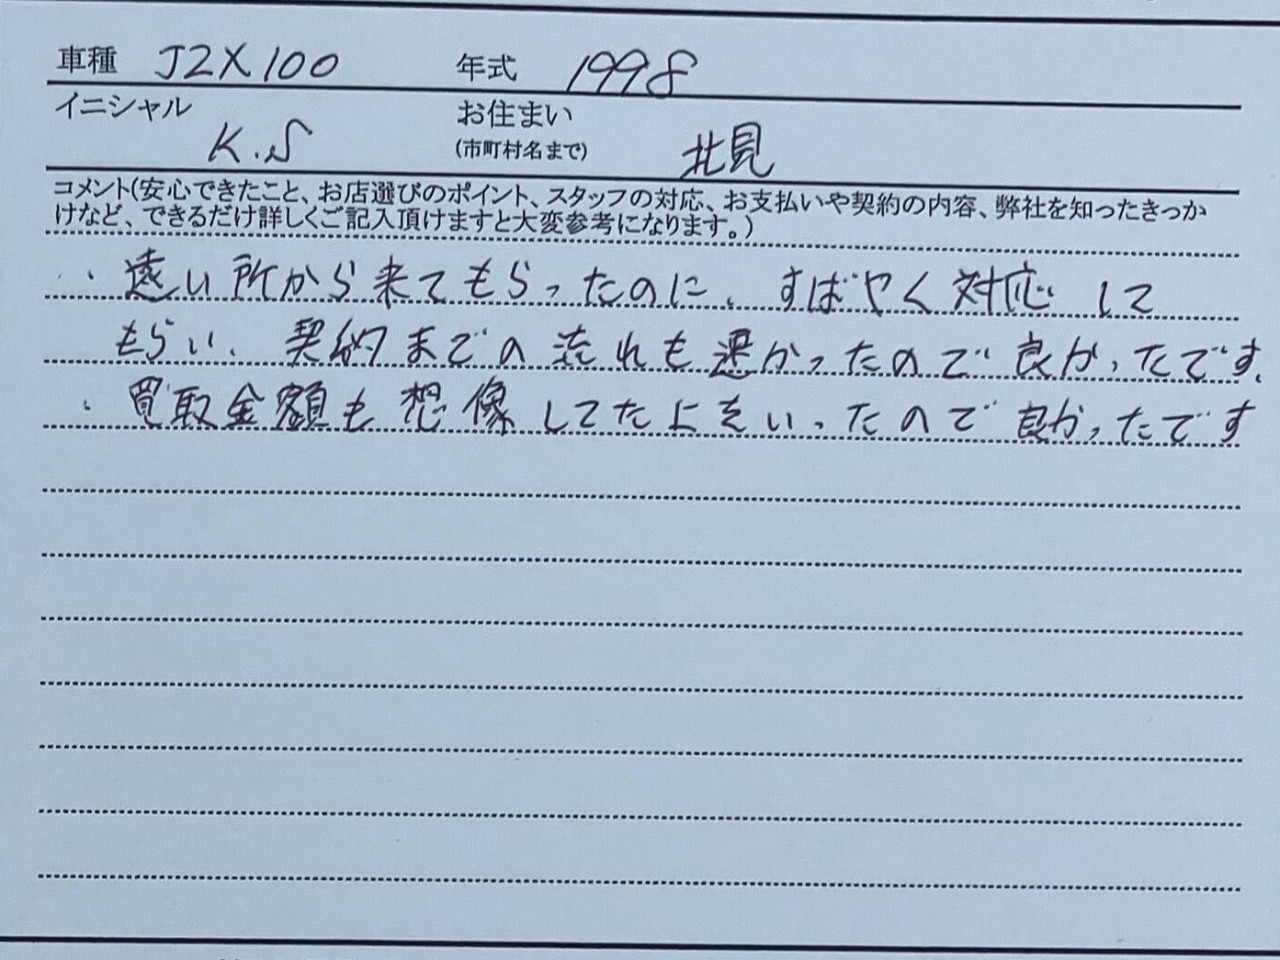 車種 JZX100 年式 1998
イニシャル K.S お住まい(市町村名まで) 北見
コメント(安心できたこと、お店選びのポイント、スタッフの対応、お支払いや契約の内容、弊社を知ったきっか
けなど、できるだけ詳しくご記入頂けますと大変参考になります。)
・遠い所から来てもらったのに、すばやく対応して
もらい、契約までの流れも悪かったので良かったです。
・買取金額も想像してた上をいったので良かったです